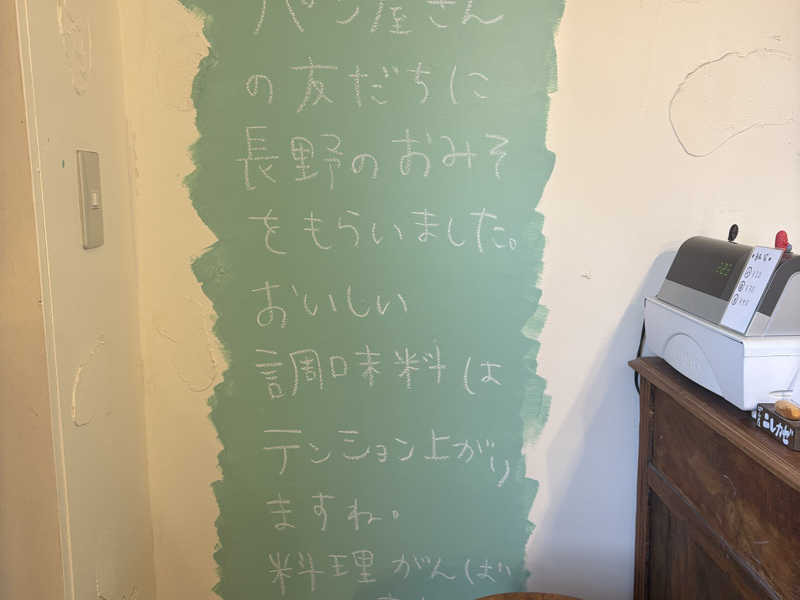 パン屋さん
の友だちに
長野のおみそ
をもらいました。
おいしい
調味料は
テンション上がり
ますね。
料理がんばり